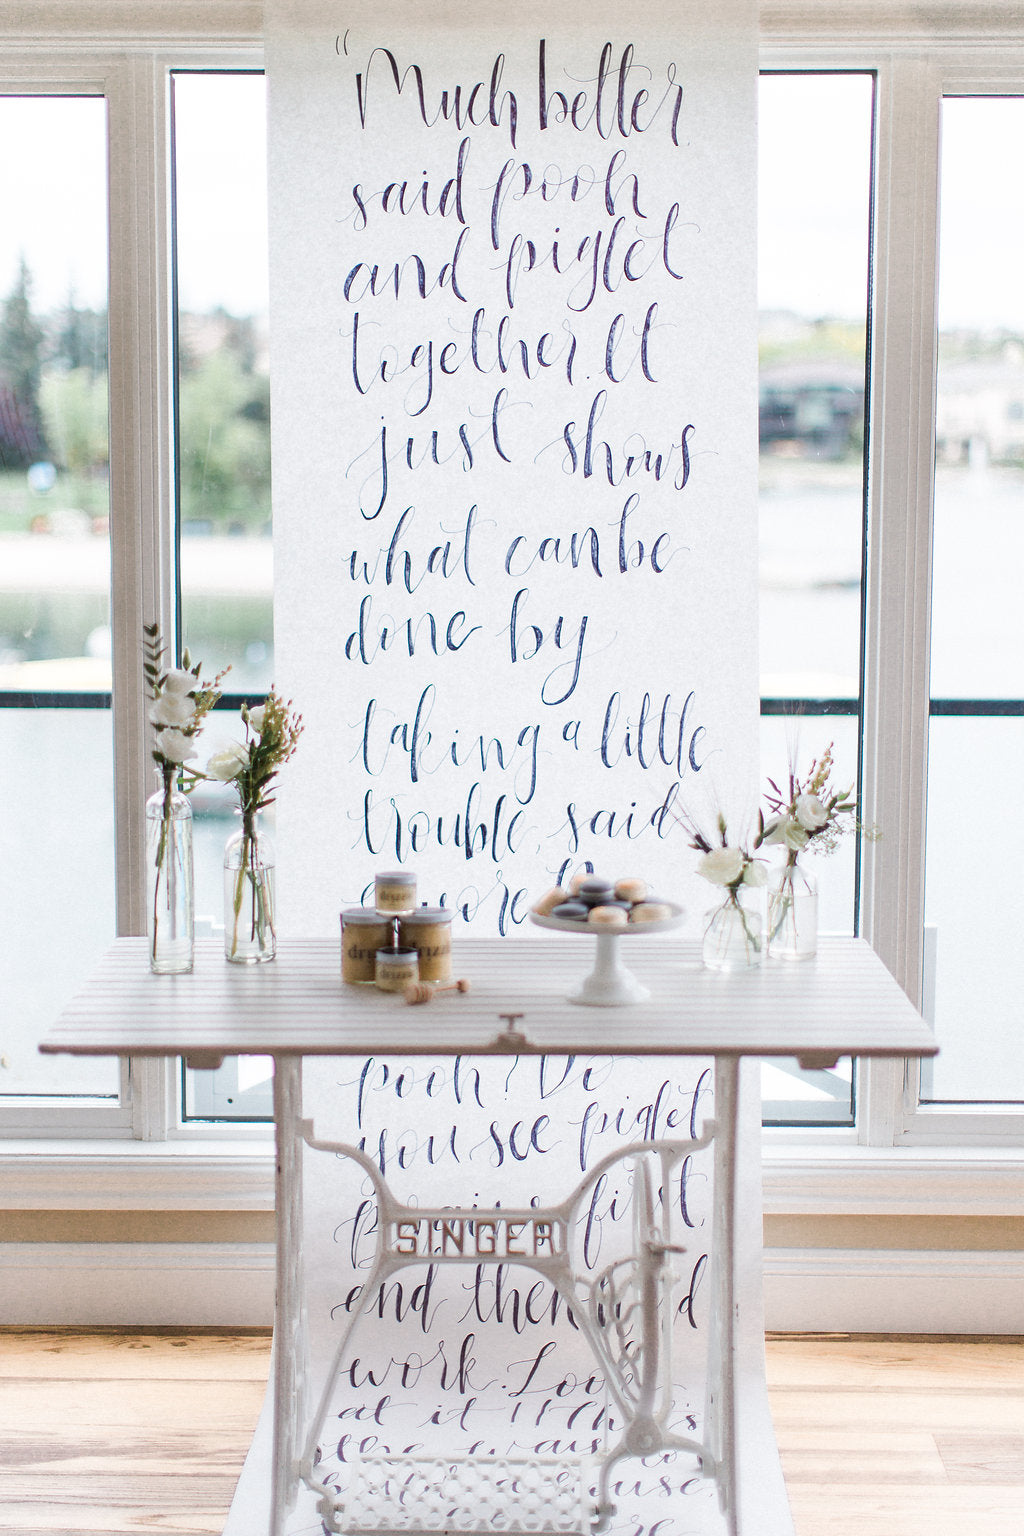 "Much better
said pooh
and piglet
together. It
just shows
what can be
done by
taking a little
trouble, said
drizzle
dri drizzle
drizzle
pooh? Do
you see piglet
first,
SINGER
and then
work. Look
at it !!
the way to
build a house,